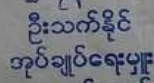 ဦးသက်နိုင်
အုပ်ချုပ်ရေးမှူး